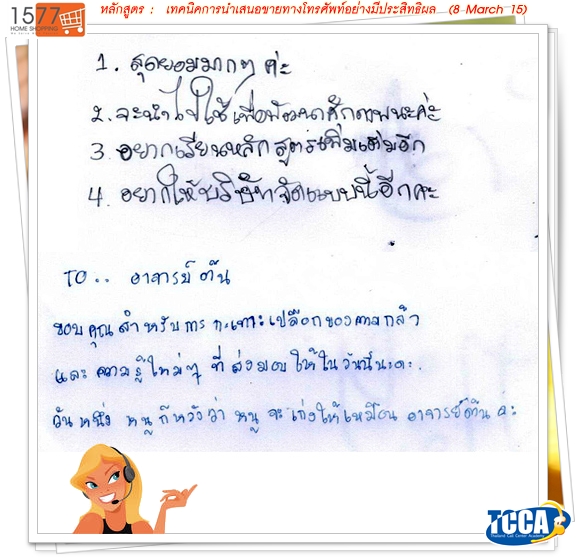 1577
HOME SHOPPING
หลักสูตร : เทคนิคการนำเสนอขายทางโทรศัพท์อย่างมีประสิทธิผล (8 March 15)
1. สุดยอดมากๆ ค่ะ
2. จะนำไปใช้เพื่อพัฒนาศักดิภาพนะค่ะ
3. อยากเรียนหลักสูตรเพิ่มเติมอีก
4. อยากให้บริษัทจัดแบบนี้อีกคะ
TO.. อาจารย์ต้น
ขอบคุณสำหรับการกะเทาะเปลือกของความกล้า
และ ความรู้ใหม่ๆ ที่ส่งมอบให้ในวันนี้นะคะ.
วันหนึ่ง หนูก็หวังว่า หนูจะเก่งให้เหมือน อาจารย์ต้น ค่ะ
TCCA
Thailand Call Center Academy